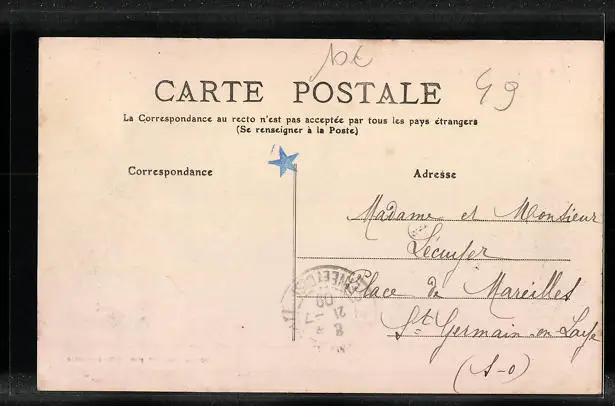 CARTE POSTALE
49
La Correspondance au recto n'est pas acceptée par tous les pays étrangers
(Se renseigner à la Poste)
Correspondance
Adresse
Madame et Monsieur
Lécuyer
Place de Mareilles
St Germain-en-Laye
(S-O)